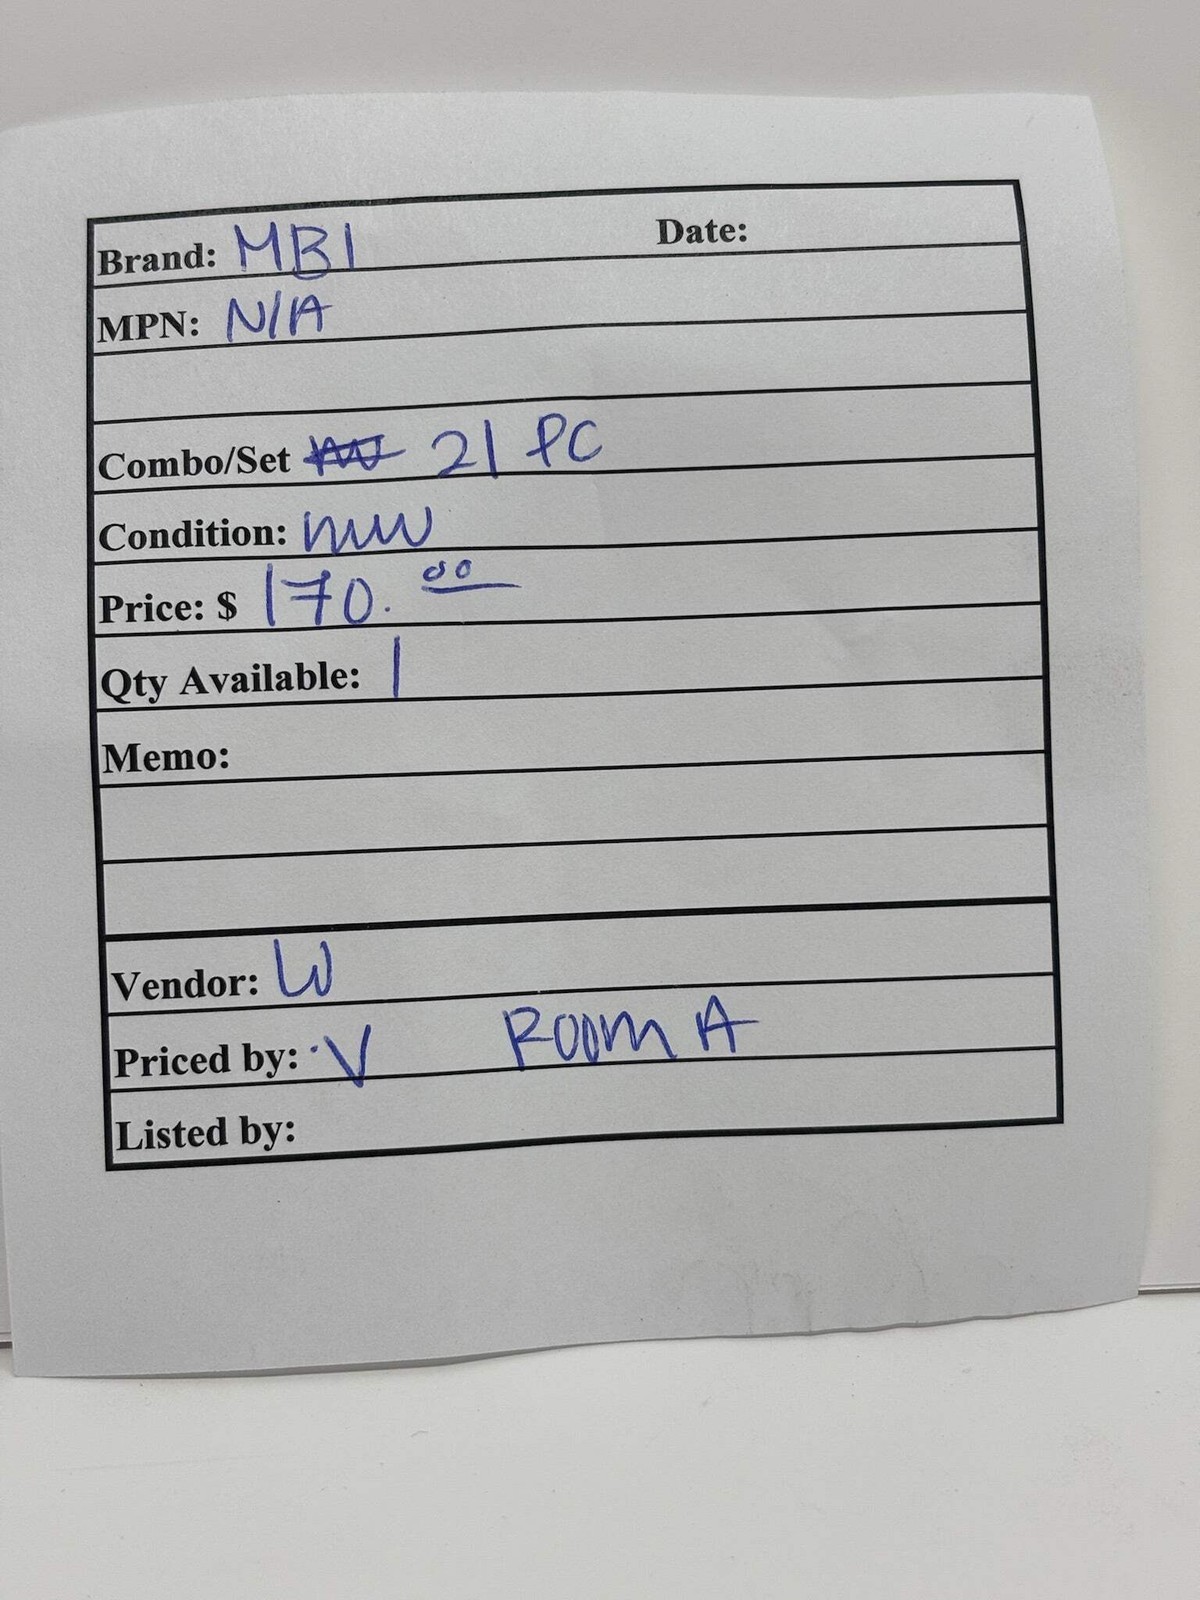 Brand: MBI Date:
MPN: N/A
Combo/Set 21 PC
Condition: new
Price: $ 170.00
Qty Available: 1
Memo:
Vendor: W
Priced by: V Room A
Listed by: